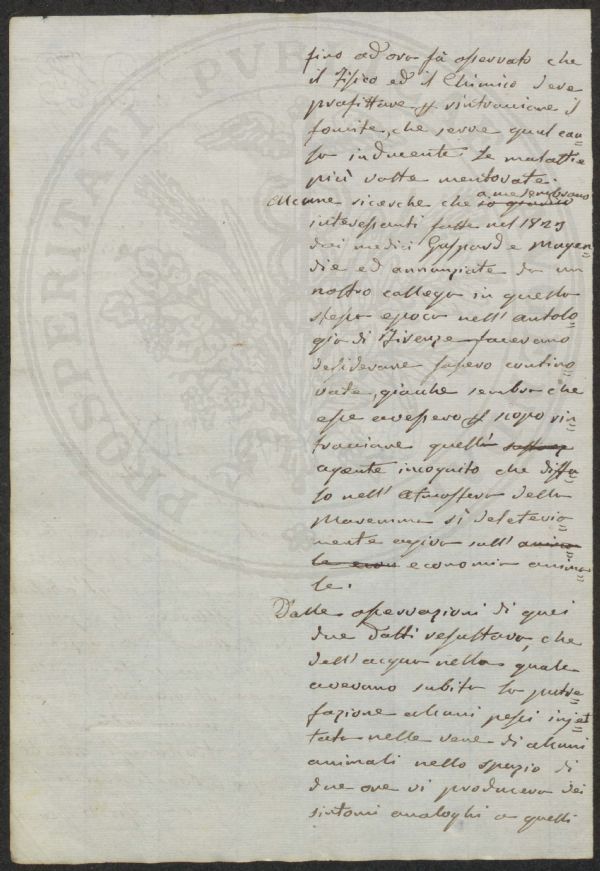 fino ad ora fà osservato che
il Fisico ed il Chimico deve
profittare p rintracciare il
fomite, che serve qual cau=
sa inducente le malattie
più volte mentovate.
Alcune ricerche che so giudico a me sembrano
interessanti fatte nel 1823
dai medici Gaspard e Magen=
die ed annunziate da un
nostro collega in quella
stessa epoca nell'antolo=
gia di Firenze facevano
desiderare fossero contino=
vate, giacché sembra che
esse avessero p scopo rin=
tracciare quell'
agente incognito che diffu=
so nell'Atmosfera della
Maremma sì deleteria=
mente agiva sull' anima=
le econ economia anima=
le.
Dalle osservazioni di quei
due Dotti resultava, che
dell'acqua nella quale
avevano subito la putre=
fazione alcuni pesci injet=
tata nelle vene di alcuni
animali nello spazio di
due ore vi produceva dei
sintomi analoghi a quelli
PROSPERITATI PVB